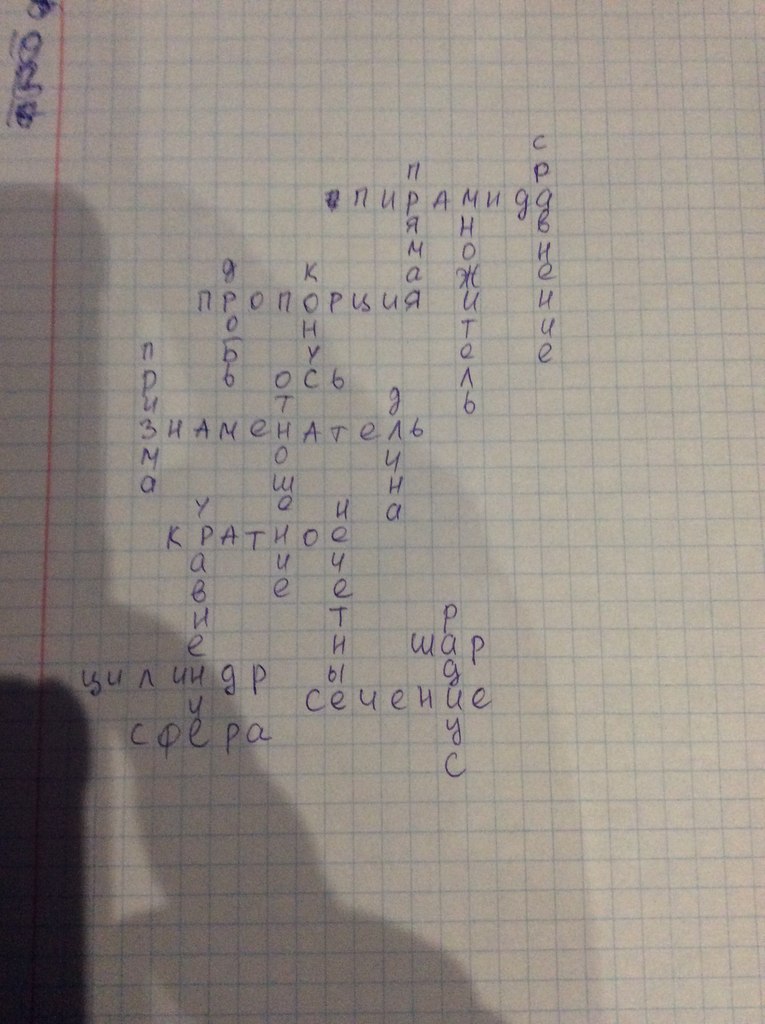 сравнение
прямая
пирамида
множитель
дробь
конус
пропорция
призма
ось
отношение
длина
знаменатель
уравнение
нечетные
кратное
радиус
шар
цилиндр
сечение
сфера